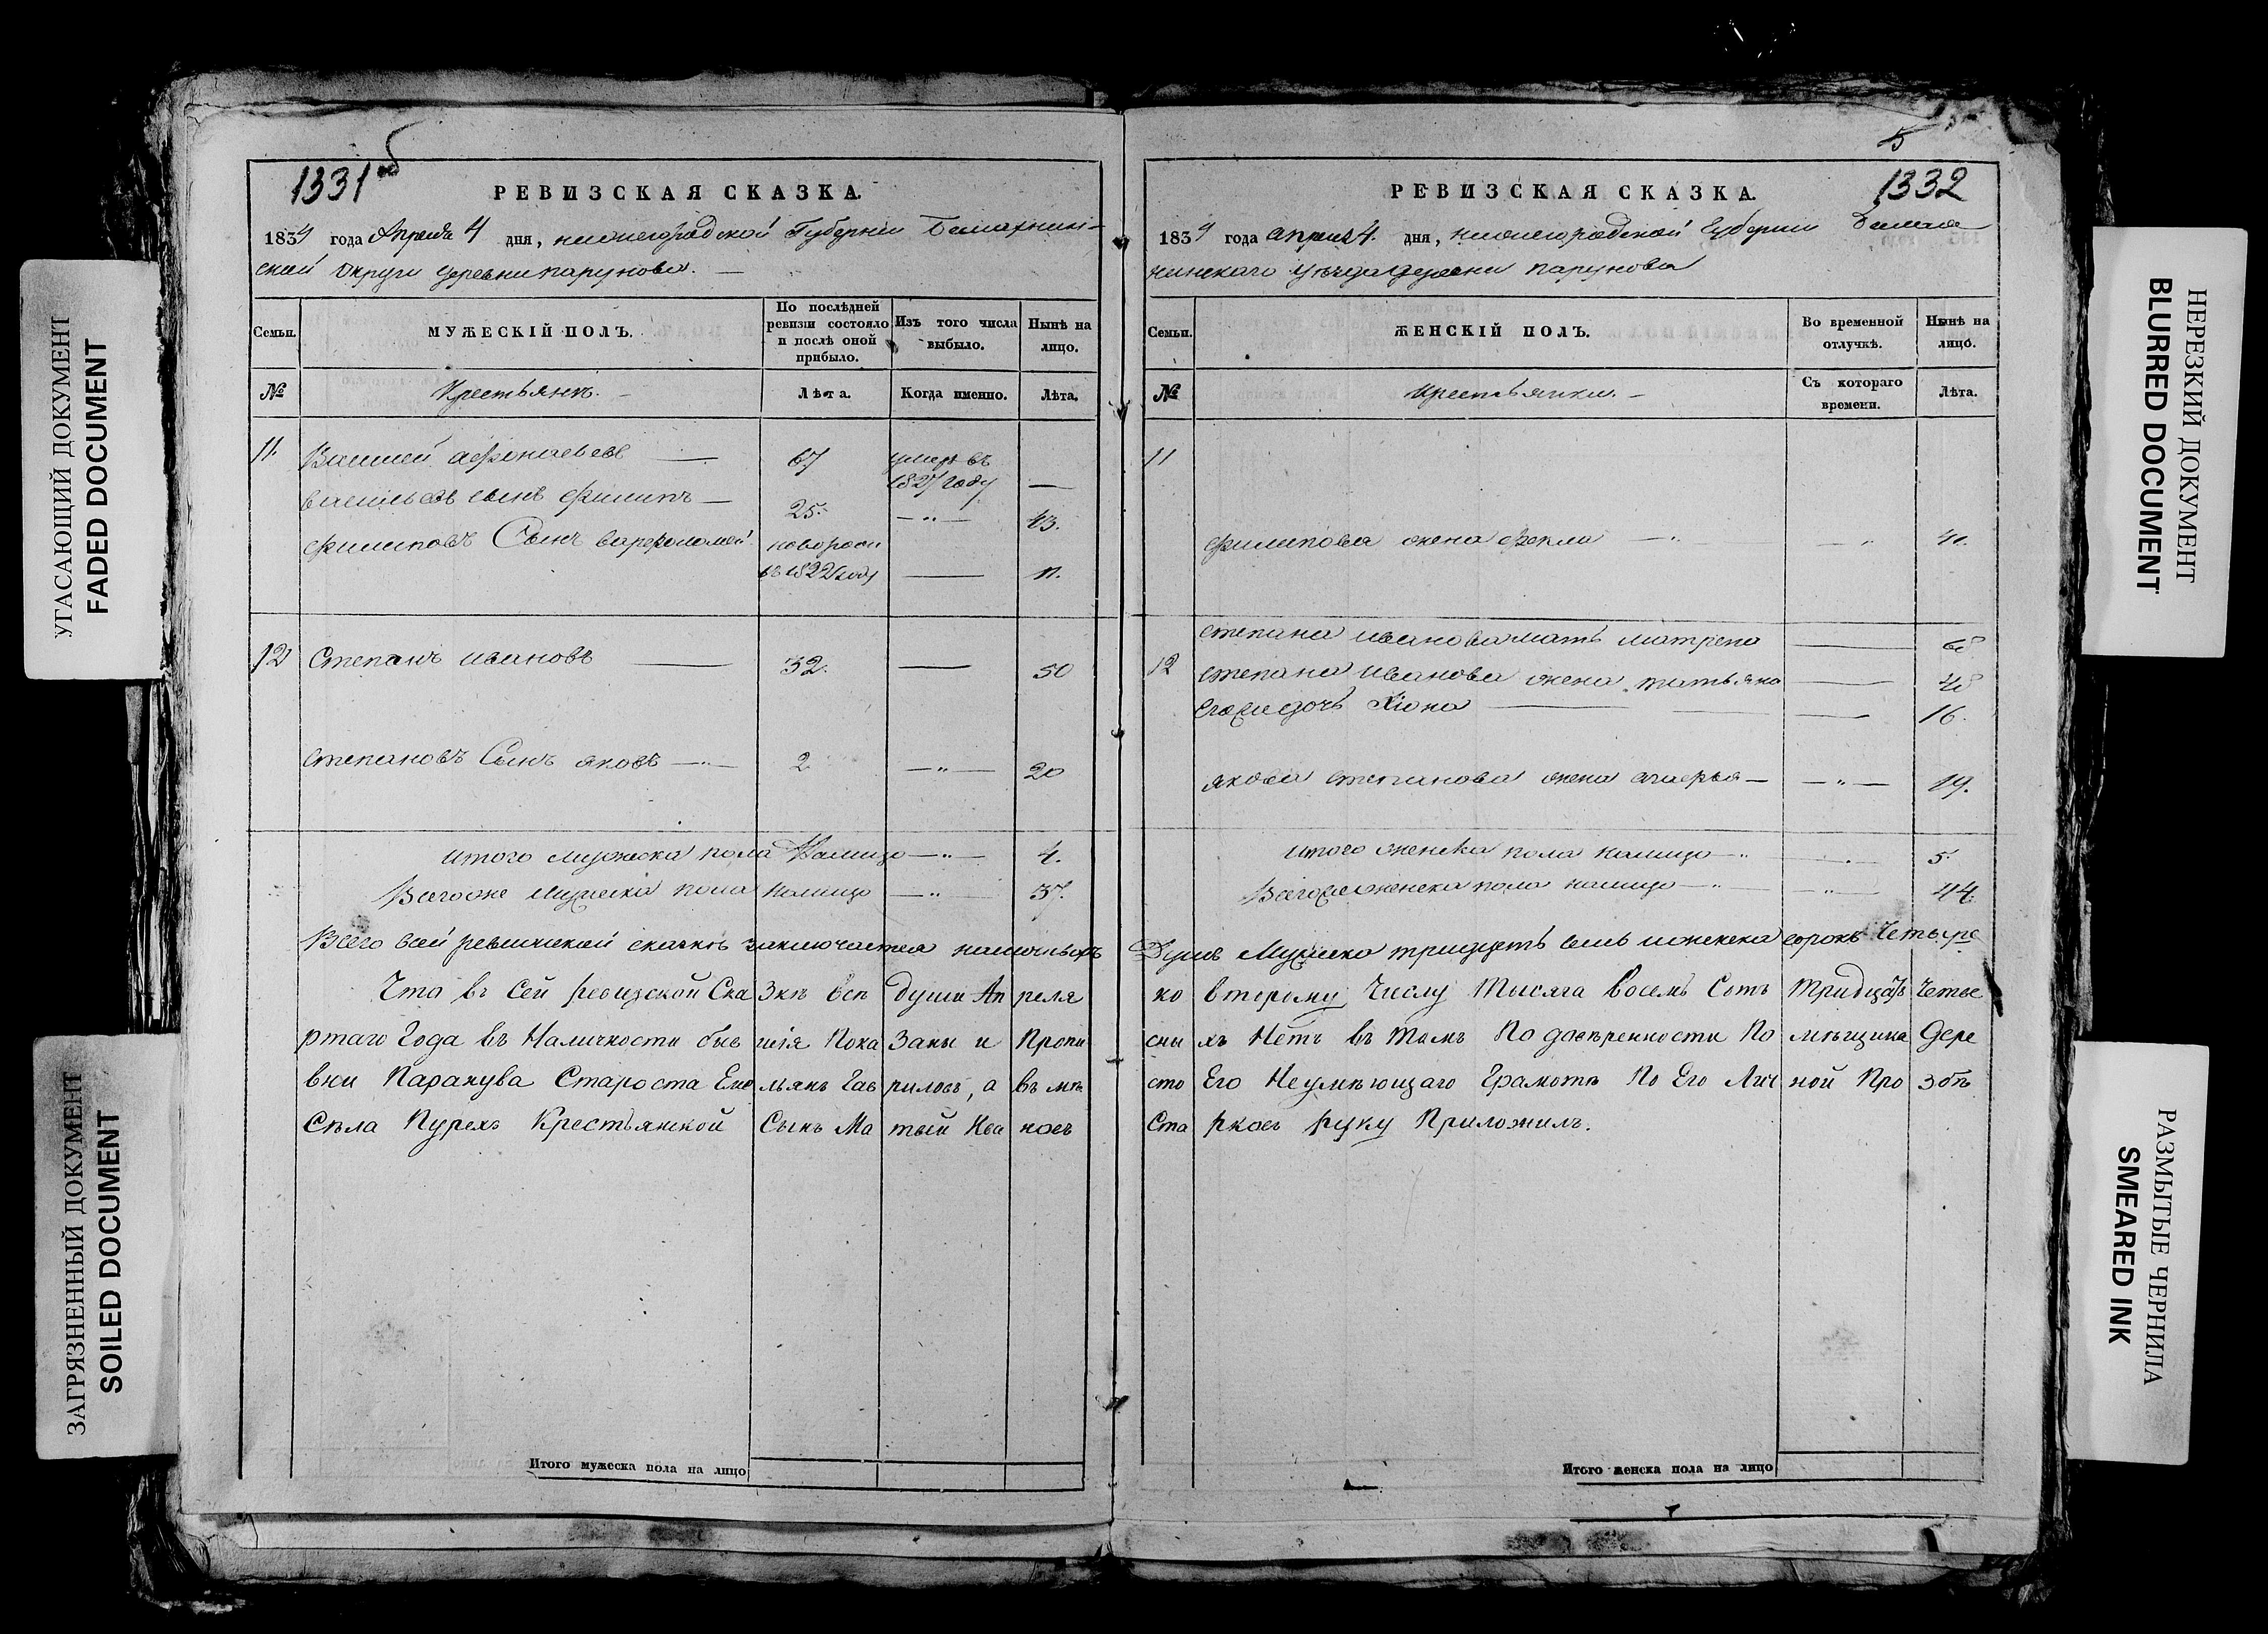 УГАСАЮЩИЙ ДОКУМЕНТ
FADED DOCUMENT
ЗАГРЯЗНЕННЫЙ ДОКУМЕНТ
SOILED DOCUMENT
1331 об
РЕВИЗСКАЯ СКАЗКА.
1834 года Апреля 4 дня, нижегородской Губернии Балахнин-
ской округи деревни парунова.
Семьи.
МУЖЕСКІЙ ПОЛЪ.
По послѣдней ревизіи состояло и послѣ оной прибыло.
Изъ того числа выбыло.
Нынѣ на лицо.
№
Крестьянъ.
Лѣта.
Когда именно.
Лѣта.
11. Василей афонасьевъ 67 умеръ въ 1827 году —
васильевъ сынъ филипъ 25. — 43.
филиповъ Сынъ варфоломей новорож въ 1822 году — 11.
12 Степанъ ивановъ 32. — 50
степановъ Сынъ яковъ 2 — 20
итого мужеска пола Налицо 4.
Всегоже мужеска пола налицо 37.
Всего всей ревижской сказкѣ заключается наличныхъ
Что въ Сей ревизской Сказкѣ всѣ души Апреля
ртаго Года въ Наличности бывшія Показаны и Пропи
вни Паранува Староста Емельянъ Гавриловъ, а въ мѣ
Сѣла Пурехъ Крестьянской Сынъ Ма тый Ивановъ
Итого мужеска пола на лицо
5
1332
РЕВИЗСКАЯ СКАЗКА.
1834 года апреля 4. дня, нижегородской Губернии Балах
нинскаго уѣзда деревни парунова
Семьи.
ЖЕНСКІЙ ПОЛЪ.
Во временной отлучкѣ.
Нынѣ на лицо.
№
крестьянки.
Съ котораго времени.
Лѣта.
11
филипова жена фекла 41.
степана иванова мать матрена 68
12 степана иванова жена татьяна 48
Егоже дочь Хіона 16.
якова степанова жена 19.
итого женска пола налицо 5.
Всегоже женска пола налицо 44.
Душъ Мужеска тридцеть семь иженска сорокъ Четыре
ко второму Числу Тысяга Восемь Сотъ Тридцать Четве
сныхъ Нетъ въ Томъ По довѣренности Помѣщика Дере
сто Его Неумѣющаго Грамотѣ По Его Личной Прозбѣ
Старковъ руку Приложилъ.
Итого женска пола на лицо
НЕРЕЗКИЙ ДОКУМЕНТ
BLURRED DOCUMENT
РАЗМЫТЫЕ ЧЕРНИЛА
SMEARED INK